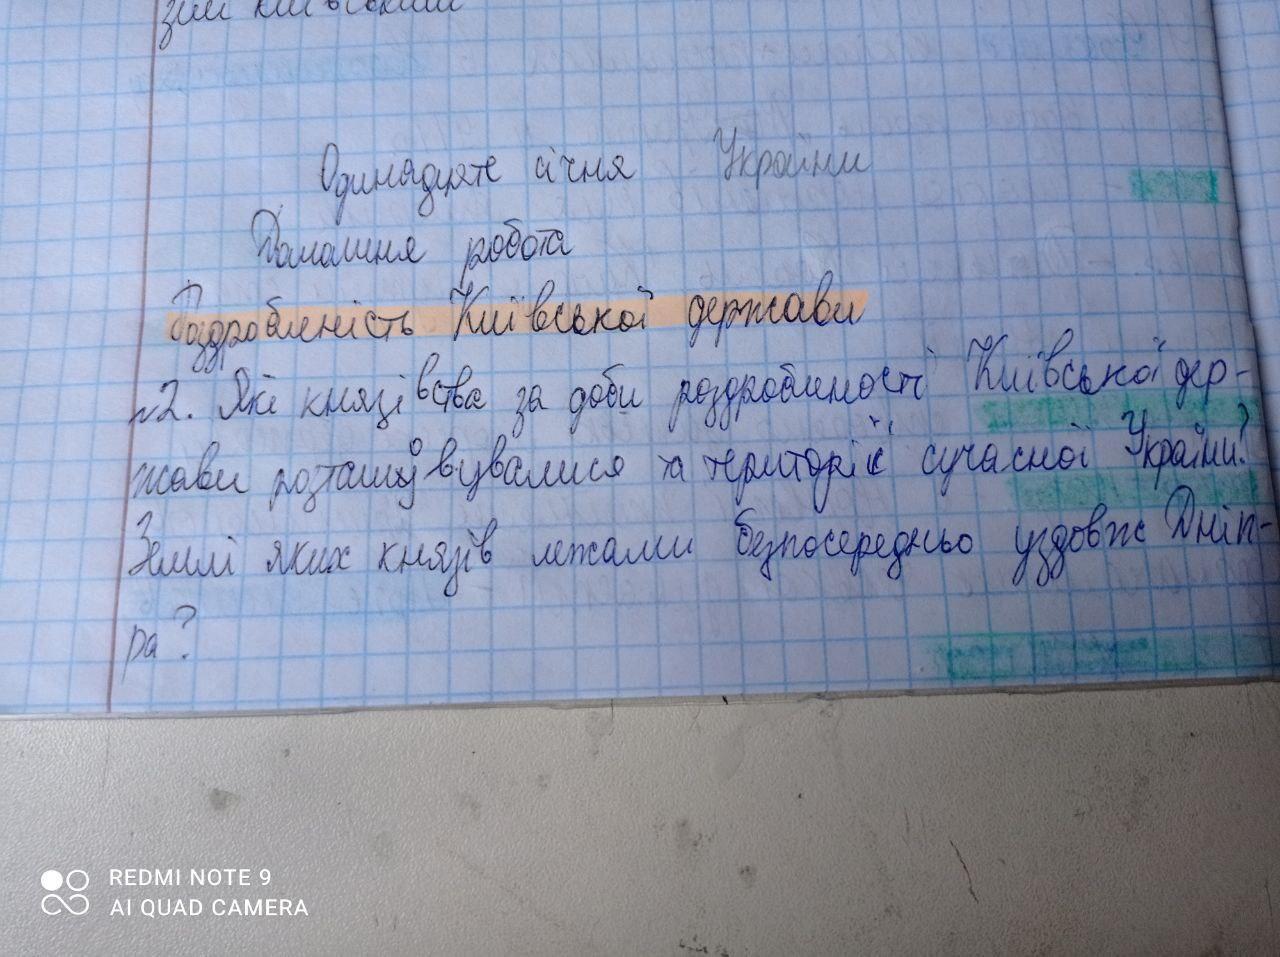 зий київський
Одинадцяте січня України
Домашня робота
Роздробленість Київської держави
№2. Які князівства за доби роздробленості Київської дер-
жави розташовувалися та території сучасної України?
Землі яких князів лежали безпосередньо уздовж Дніп-
ра?
REDMI NOTE 9
AI QUAD CAMERA